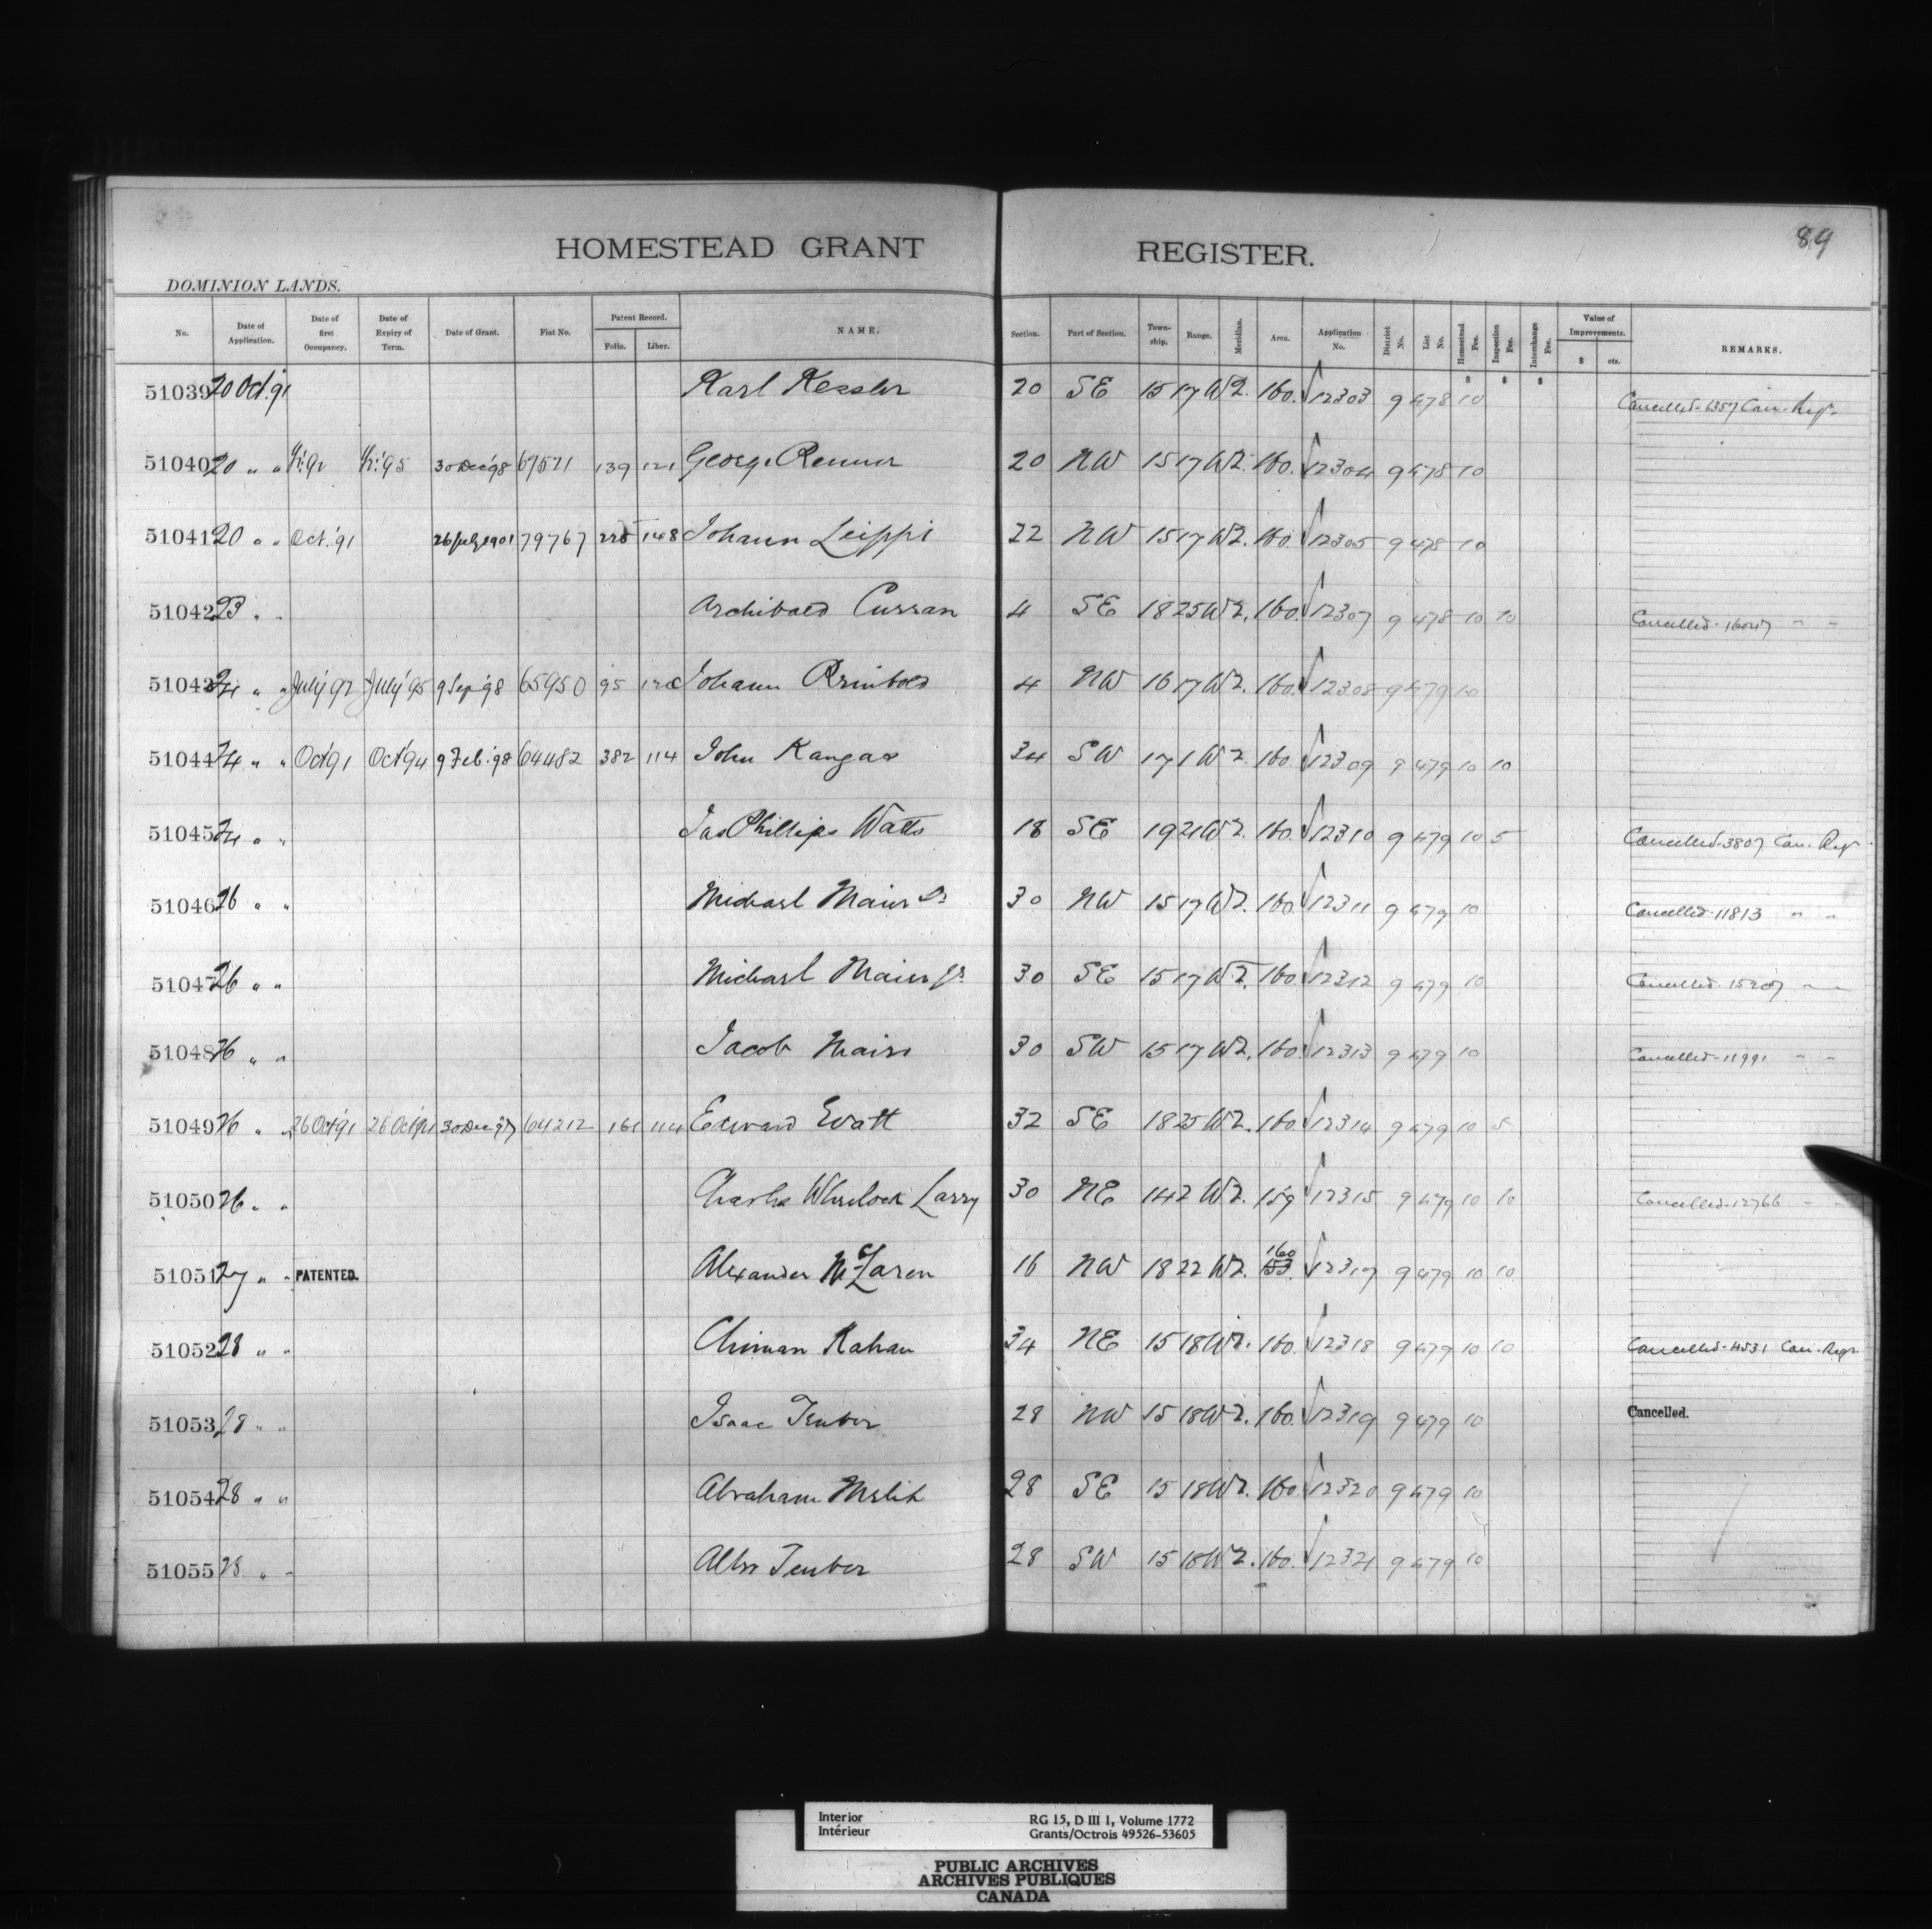 84
HOMESTEAD GRANT REGISTER.
DOMINION LANDS.
No. Date of Application. Date of first Occupancy. Date of Expiry of Term. Date of Grant. Fiat No. Patent Record. Folio. Liber. NAME. Section. Part of Section. Township. Range. Meridian. Area. Application No. District No. List No. Homestead Fee. Inspection Fee. Interchange Fee. Value of Improvements. $ cts. REMARKS.
$ $ $
51039 20 Oct. '91 Karl Kessler 20 SE 15 17 W2. 160. 12303 9 478 10 Cancelled - 6357 Can. Regr.
51040 20 " " '92 '95 30 Dec '98 67571 139 121 George Renner 20 NW 15 17 W2. 160. 12304 9 478 10
51041 20 " " Oct. '91 26 July 1901 79767 225 148 Johann Leippi 22 NW 15 17 W2. 160. 12305 9 478 10
51042 23 " " Archibald Curran 4 SE 18 25 W2. 160. 12307 9 478 10 10 Cancelled - 16047 " "
51043 24 " " July '92 July '95 9 Sep '98 65950 95 Johann 4 NW 16 17 W2. 160. 12308 9 479 10
51044 24 " " Oct '91 Oct '94 9 Feb. '98 64482 382 114 John Kangas 34 SW 17 1 W2. 160. 12309 9 479 10 10
51045 24 " " Jas Phillips Watts 18 SE 19 21 W2. 160. 12310 9 479 10 5 Cancelled - 3807 Can. Regr.
51046 26 " " Michael Maier Sr 30 NW 15 17 W2. 160. 12311 9 479 10 Cancelled - 11813 " "
51047 26 " " Michael Maier Jr 30 SE 15 17 W2. 160. 12312 9 479 10 Cancelled - 15207 " "
51048 26 " " Jacob Maier 30 SW 15 17 W2. 160. 12313 9 479 10 Cancelled - 11991 " "
51049 26 " " 26 Oct '91 26 Oct 30 Dec '97 64212 161 114 Edward Evatt 32 SE 18 25 W2. 160. 12314 9 479 10 5
51050 26 " " Charles Wheelock Larry 30 NE 14 2 W2. 159 12315 9 479 10 10 Cancelled - 12766 " "
51051 27 " " PATENTED. Alexander McLaren 16 NW 18 22 W2. 160 153. 12317 9 479 10 10
51052 28 " " Kahan 34 NE 15 18 W2. 160. 12318 9 479 10 10 Cancelled - 4531 Can. Regr.
51053 28 " " Isaac Teuber 28 NW 15 18 W2. 160. 12319 9 479 10 Cancelled.
51054 28 " " Abraham 28 SE 15 18 W2. 160. 12320 9 479 10
51055 28 " " Teuber 28 SW 15 18 W2. 160. 12321 9 479 10
Interior RG 15, D III 1, Volume 1772
Intérieur Grants/Octrois 49526-53605
PUBLIC ARCHIVES
ARCHIVES PUBLIQUES
CANADA